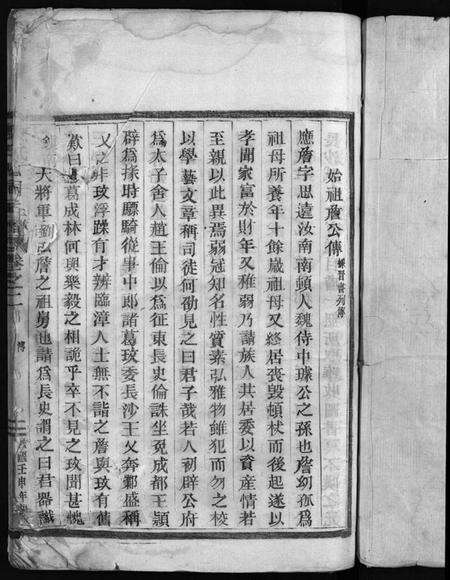 始祖詹公傳 採晉書列傳
應詹字思遠汝南南頓人魏侍中璩公之孫也詹幼孤爲
祖母所養年十餘歲祖母又終居喪毀頓杖而後起遂以
孝聞家富於財年又稚弱乃請族人共居委以資産情若
至親以此異焉弱冠知名性質素弘雅物雖犯而勿之校
以學藝文章稱司徒何劭見之曰君子哉若人初辟公府
爲太子舍人趙王倫以爲征東長史倫誅坐免成都王頴
辟爲掾時驃騎從事中郎諸葛玫委長沙王乂奔鄴盛稱
乂之非玫浮躁有才辨臨漳人士無不詣之詹與玫有舊
歎曰諸葛成林何與樂毅之相詭乎卒不見之玫聞甚愧
天將軍劉弘詹之祖舅也請爲長史謂之曰君器識
卷之二
傳
民國壬申年